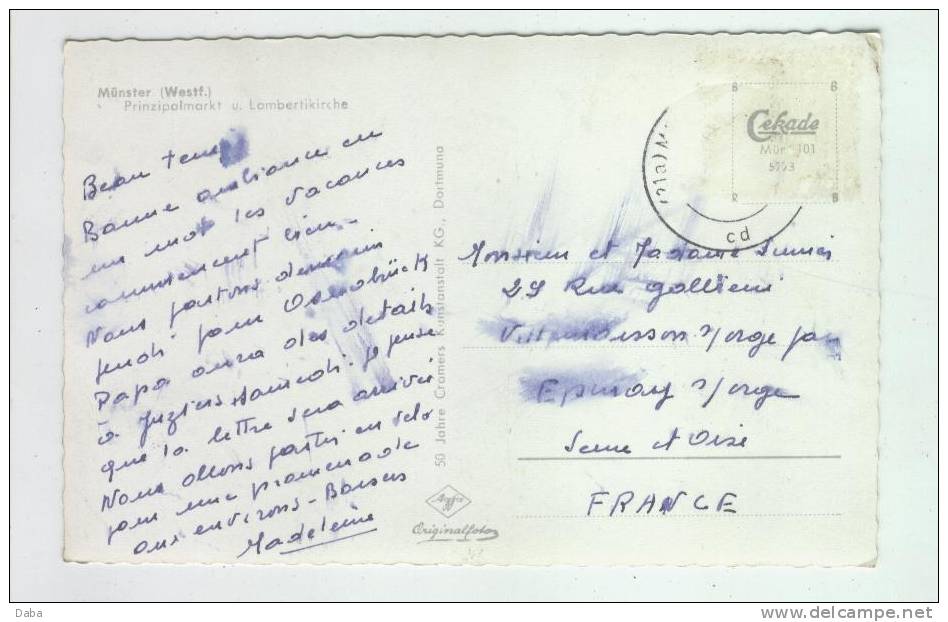 Münster (Westf.)
Prinzipalmarkt u. Lambertikirche
Beau temps
Bonne ambiance en
un mot les vacances
commencent bien -
Nous partons demain
jeudi pour Osnabrück
Papa aura des détails
à Juziers samedi. Je pense
que la lettre sera arrivée
Nous allons partir en vélo
pour une promenade
aux environs - Baisers
Madeleine
50 Jahre Cramers Kunstanstalt KG., Dortmund
Agfa
Originalfoto
B B
Cekade
Mür 101
5953
B
(21a) M
cd
Monsieur et Madame
29 Rue Gallieni
Villemoisson s/orge par
Epinay s/orge
Seine et Oise
FRANCE
Daba
delcampe.net